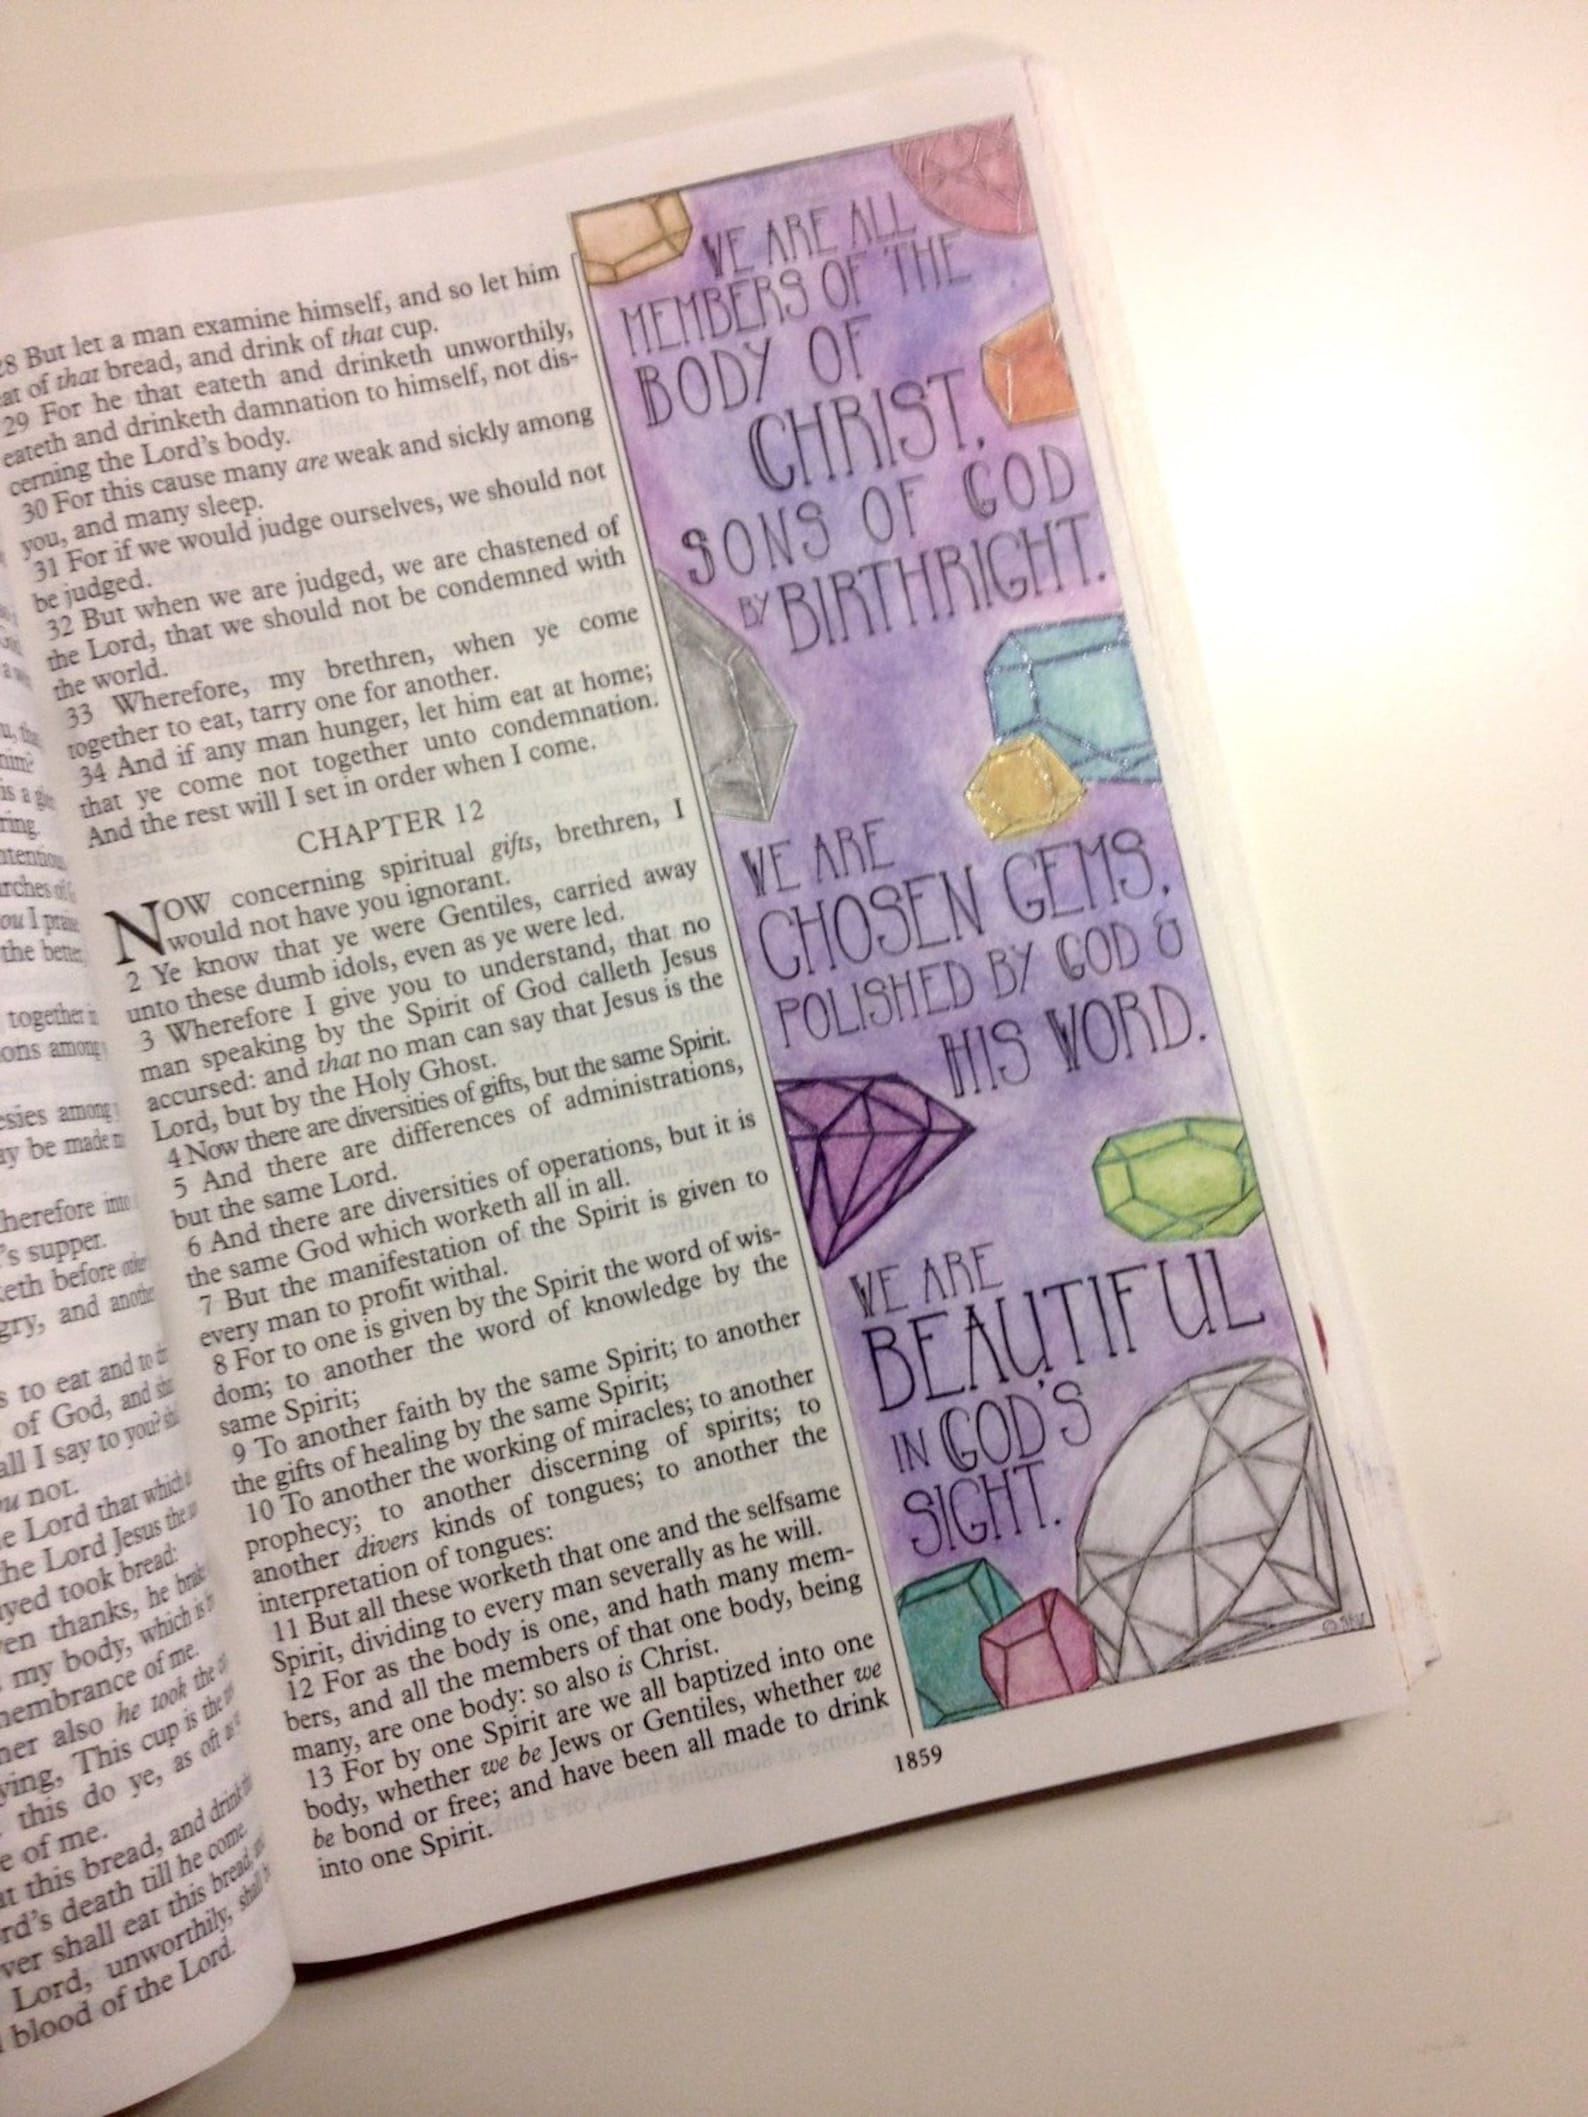 28 But let a man examine himself, and so let him
eat of that bread, and drink of that cup.
29 For he that eateth and drinketh unworthily,
eateth and drinketh damnation to himself, not dis-
cerning the Lord's body.
30 For this cause many are weak and sickly among
you, and many sleep.
31 For if we would judge ourselves, we should not
be judged.
32 But when we are judged, we are chastened of
the Lord, that we should not be condemned with
the world.
33 Wherefore, my brethren, when ye come
together to eat, tarry one for another.
34 And if any man hunger, let him eat at home;
that ye come not together unto condemnation.
And the rest will I set in order when I come.
CHAPTER 12
NOW concerning spiritual gifts, brethren, I
would not have you ignorant.
2 Ye know that ye were Gentiles, carried away
unto these dumb idols, even as ye were led.
3 Wherefore I give you to understand, that no
man speaking by the Spirit of God calleth Jesus
accursed: and that no man can say that Jesus is the
Lord, but by the Holy Ghost.
4 Now there are diversities of gifts, but the same Spirit.
5 And there are differences of administrations,
but the same Lord.
6 And there are diversities of operations, but it is
the same God which worketh all in all.
7 But the manifestation of the Spirit is given to
every man to profit withal.
8 For to one is given by the Spirit the word of wis-
dom; to another the word of knowledge by the
same Spirit;
9 To another faith by the same Spirit; to another
the gifts of healing by the same Spirit;
10 To another the working of miracles; to another
prophecy; to another discerning of spirits; to
another divers kinds of tongues; to another the
interpretation of tongues:
11 But all these worketh that one and the selfsame
Spirit, dividing to every man severally as he will.
12 For as the body is one, and hath many mem-
bers, and all the members of that one body, being
many, are one body: so also is Christ.
13 For by one Spirit are we all baptized into one
body, whether we be Jews or Gentiles, whether we
be bond or free; and have been all made to drink
into one Spirit.
1859
WE ARE ALL
MEMBERS OF THE
BODY OF
CHRIST.
SONS OF GOD
BY BIRTHRIGHT.
WE ARE
CHOSEN GEMS,
POLISHED BY GOD &
HIS WORD.
WE ARE
BEAUTIFUL
IN GOD'S
SIGHT.
together
ons among
esies among
ay be made
herefore into
's supper.
eth before
gry, and
s to eat and to
of God, and
all I say to you?
not.
e Lord that which
the Lord Jesus the
ayed took bread:
en thanks, he
my body, which is
membrance of me.
ner also he took the
ying, This cup is the
this do ye, as oft
e of me.
at this bread, and drink
rd's death till he come.
ver shall eat this bread,
Lord, unworthily,
blood of the Lord.